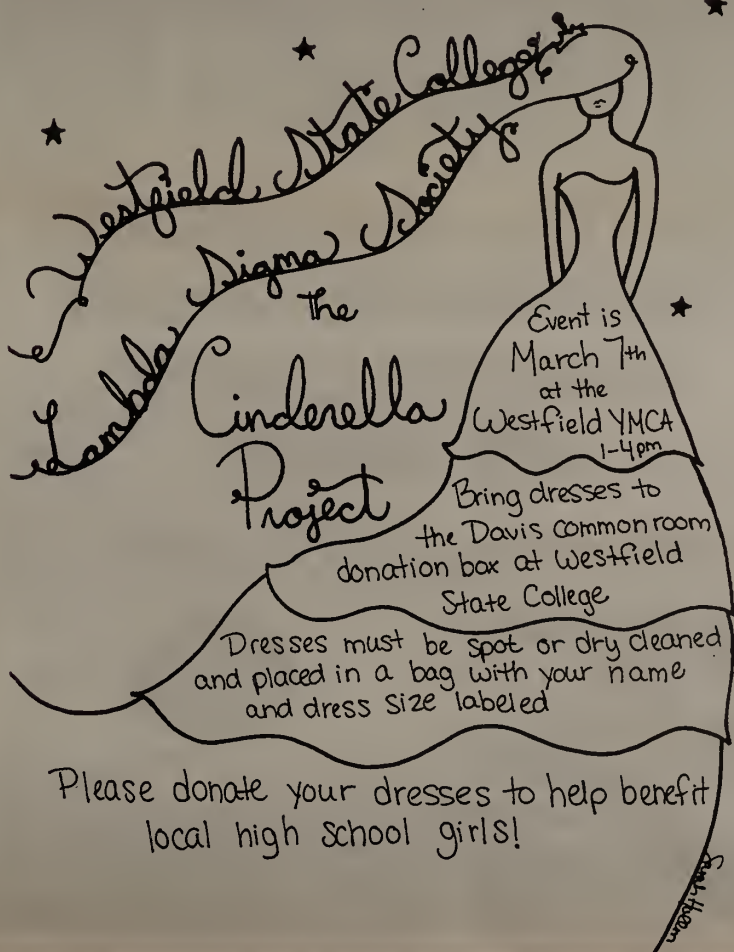 Westfield State College's
Lambda Sigma Society
The
Cinderella
Project
Event is
March 7th
at the
Westfield YMCA
1-4pm
Bring dresses to
the Davis common room
donation box at Westfield
State College
Dresses must be spot or dry cleaned
and placed in a bag with your name
and dress size labeled
Please donate your dresses to help benefit
local high school girls!